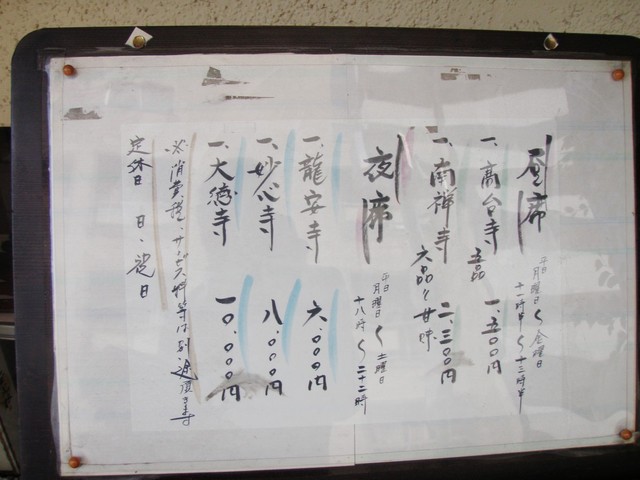 昼席
平日 月曜日〜金曜日
十一時半〜十三時半
一、高台寺 五品 一、五〇〇円
一、南禅寺 六品と甘味 二、三〇〇円
夜席
平日 月曜日〜土曜日
十八時〜二十二時
一、龍安寺 六、〇〇〇円
一、妙心寺 八、〇〇〇円
一、大徳寺 一〇、〇〇〇円
※消費税、サービス料等は別途頂きます
定休日 日、祝日